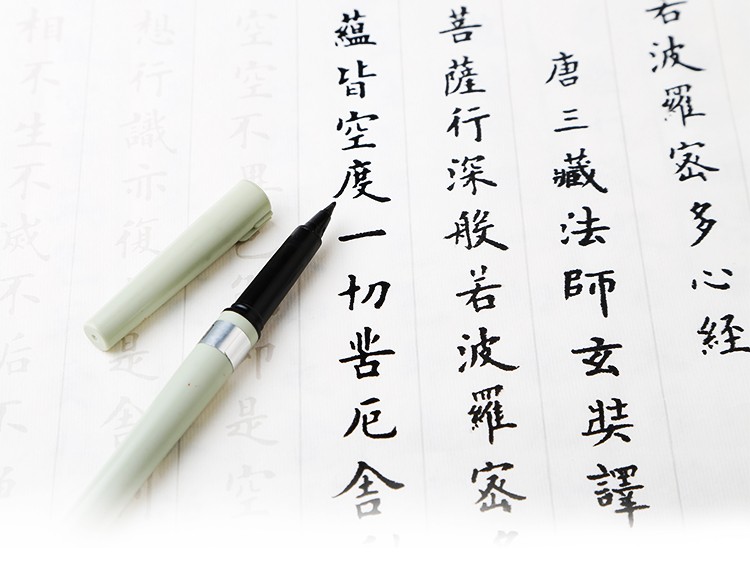 若波羅密多心經
唐三藏法師玄奘譯
菩薩行深般若波羅密多
蘊皆空度一切苦厄舍
空空不異色即是空
想行識亦復是舍
相不生不滅不垢不